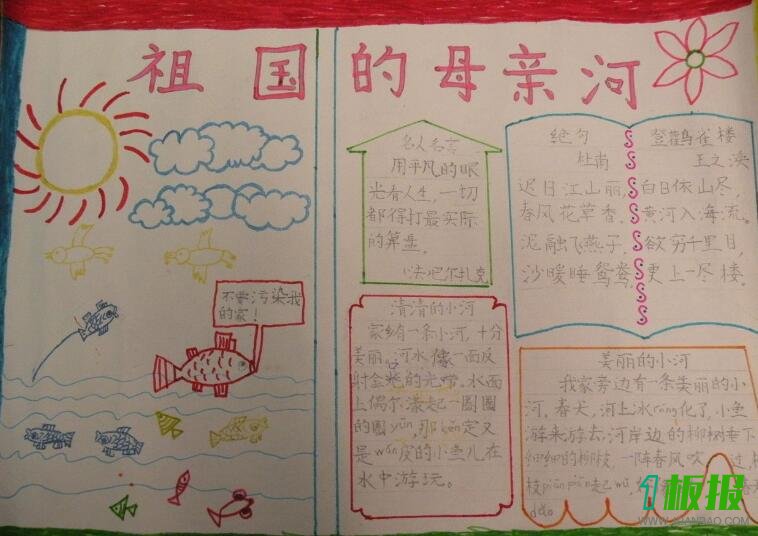 祖国的母亲河
不要污染我
的家！
名人名言
用平凡的眼
光看人生，一切
都得打最实际
的算盘。
（法）巴尔扎克
绝句
杜甫
迟日江山丽，
春风花草香，
泥融飞燕子，
沙暖睡鸳鸯。
登鹳雀楼
王之涣
白日依山尽，
黄河入海流。
欲穷千里目，
更上一尽楼。
清清的小河
家乡有一条小河，十分
美丽。河水像一面反
射金光的光带。水面
上偶尔漾起一圈圈
的圆yūn，那kěn定又
是wán皮的小鱼儿在
水中游玩。
美丽的小河
我家旁边有一条美丽的小
河，春天，河上冰róng化了，小鱼
游来游去，河岸边的柳树垂下
细细的柳枝，一阵春风吹过，柳
枝piān piān起wǔ，
1板报
WWW.1BANBAO.COM